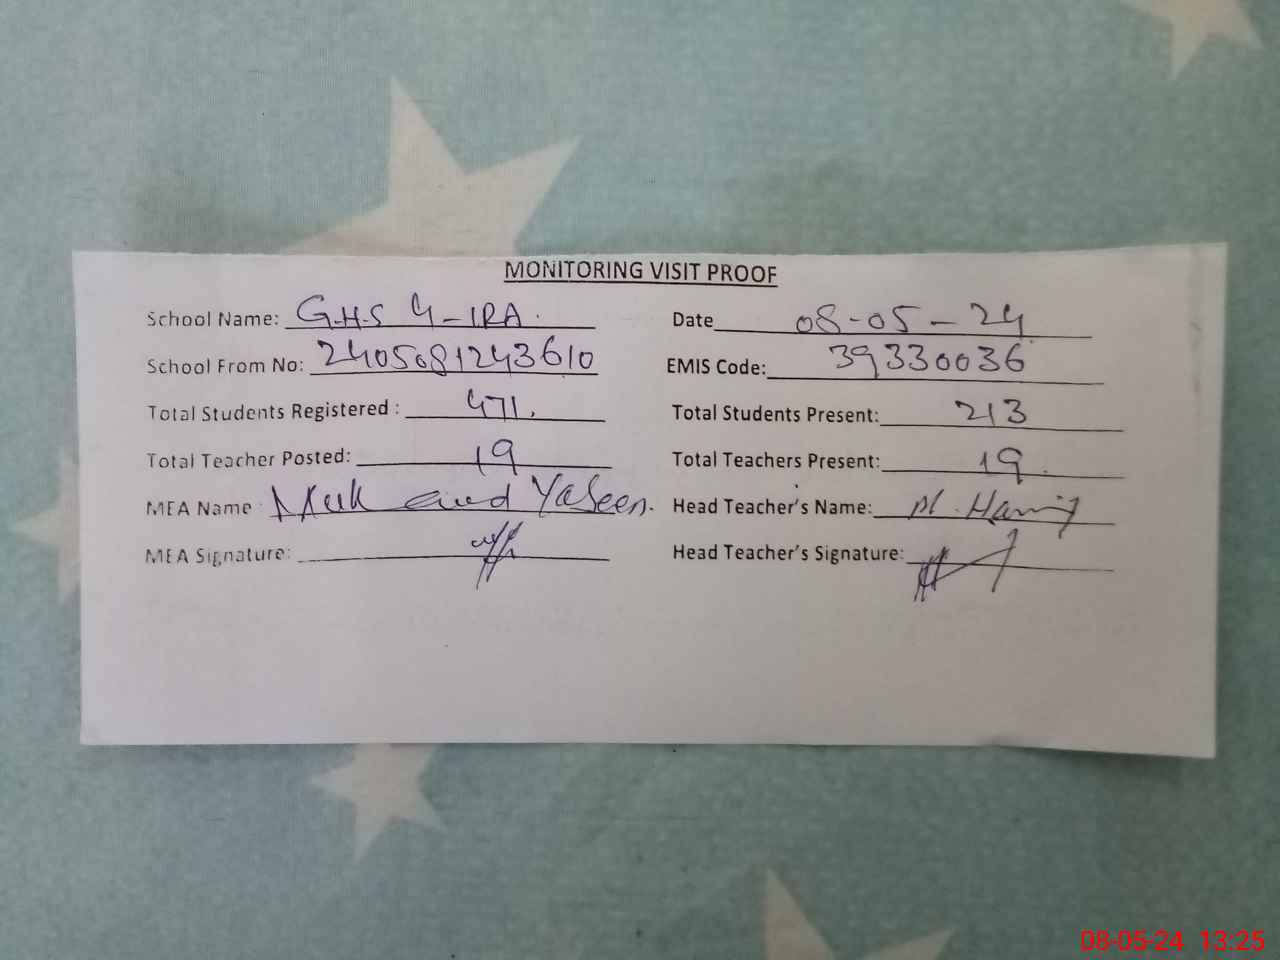 MONITORING VISIT PROOF
School Name: G.H.S 4-1RA. Date 08-05-24
School From No: 2405081243610 EMIS Code: 39330036
Total Students Registered : 471. Total Students Present: 213
Total Teacher Posted: 19 Total Teachers Present: 19.
MEA Name : Yaseen. Head Teacher's Name: M.
MEA Signature: Head Teacher's Signature:
08-05-24 13:25